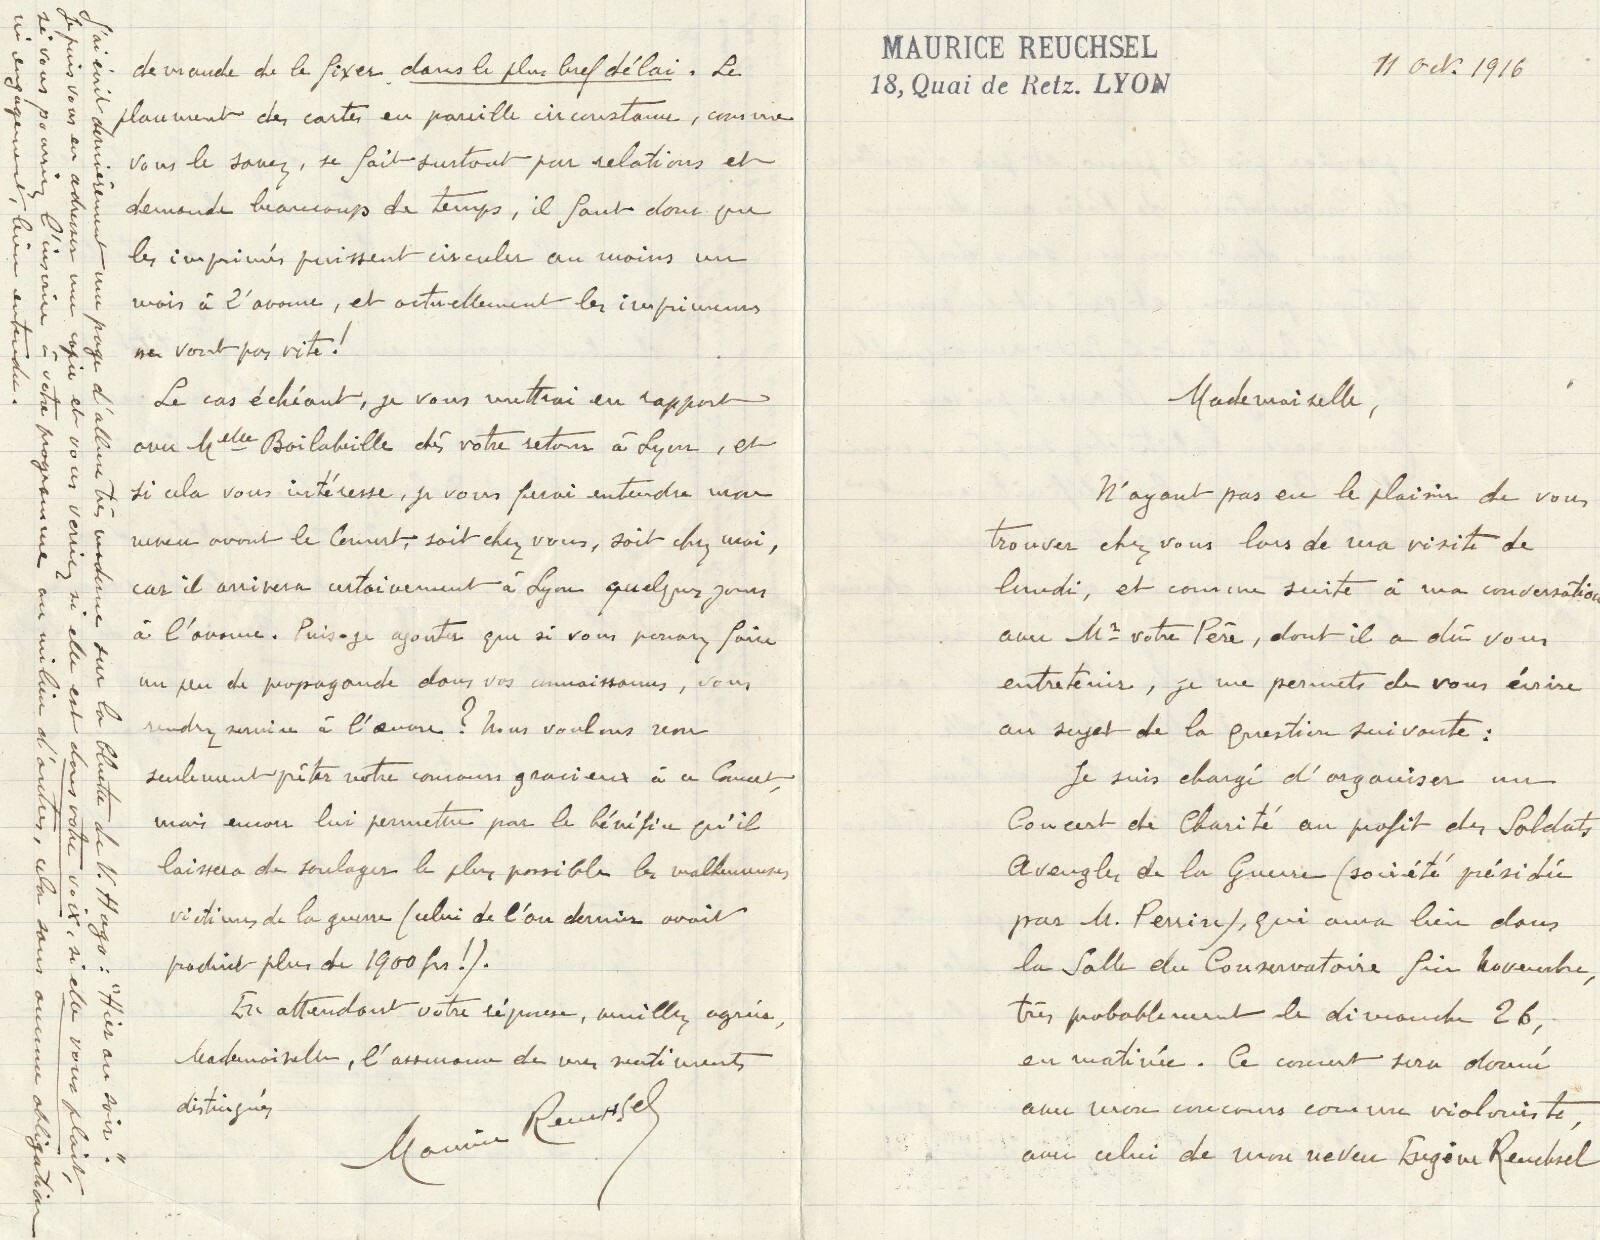 MAURICE REUCHSEL
18, Quai de Retz. LYON
11 Oct. 1916
Mademoiselle,
N'ayant pas eu le plaisir de vous
trouver chez vous lors de ma visite de
lundi, et comme suite à ma conversation
avec Mr votre Père, dont il a dû vous
entretenir, je me permets de vous écrire
au sujet de la question suivante :
Je suis chargé d'organiser un
Concert de Charité au profit des Soldats
Aveugles de la Guerre (société présidée
par M. Perrin), qui aura lieu dans
la Salle du Conservatoire fin Novembre,
très probablement le dimanche 26,
en matinée. Ce concert sera donné
avec mon concours comme violoniste,
avec celui de mon neveu Eugène Reuchsel
demande de le fixer dans le plus bref délai. Le
placement des cartes en pareille circonstance, comme
vous le savez, se fait surtout par relations et
demande beaucoup de temps, il faut donc que
les imprimés puissent circuler au moins un
mois à l'avance, et actuellement les imprimeurs
ne vont pas vite !
Le cas échéant, je vous mettrai en rapport
avec Melle Boilabeille dès votre retour à Lyon, et
si cela vous intéresse, je vous ferai entendre mon
neveu avant le Concert, soit chez vous, soit chez moi,
car il arrivera certainement à Lyon quelques jours
à l'avance. Puis-je ajouter que si vous pouvez faire
un peu de propagande dans vos connaissances, vous
rendrez service à l'œuvre ? Nous voulons non
seulement prêter notre concours gracieux à ce Concert,
mais encore lui permettre par le bénéfice qu'il
laissera de soulager le plus possible les malheureuses
victimes de la guerre (celui de l'an dernier avait
produit plus de 1900 frs !).
En attendant votre réponse, veuillez agréer,
Mademoiselle, l'assurance de mes sentiments
distingués
Maurice Reuchsel
J'ai écrit dernièrement une page d'allure très moderne sur la  de V. Hugo : "Hier au soir".
Je puis vous en adresser une copie et vous verriez si elle est dans votre voix, si elle vous plaît,
si vous pourriez l'inscrire à votre programme au milieu d'autres, cela sans aucune obligation
ni engagement, bien entendu.